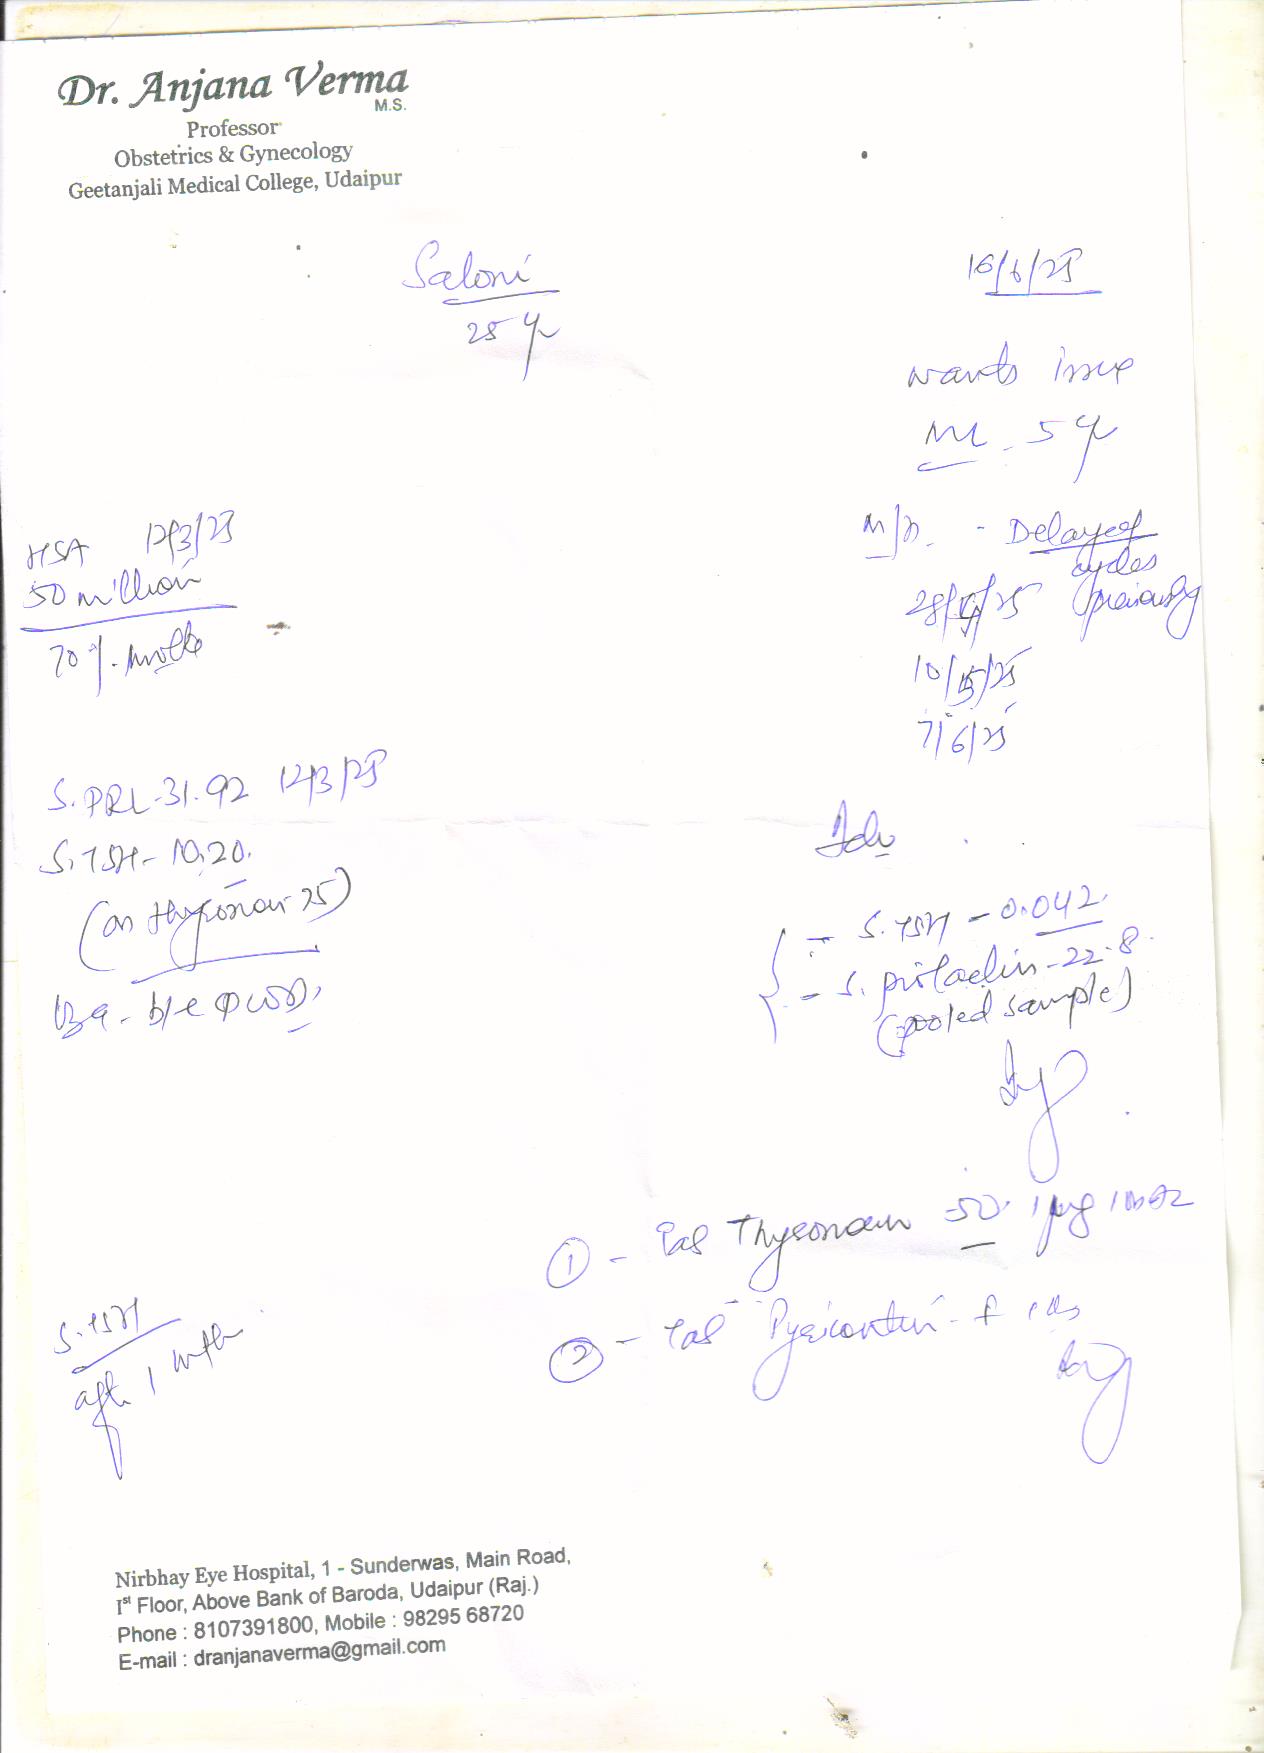 Dr. Anjana Verma
M.S.
Professor
Obstetrics & Gynecology
Geetanjali Medical College, Udaipur
Saloni
25 yr
16/6/25
wants issue
ML - 5 yr
M/H - Delayed
cycles
28/4/25 (previously
10/5/25
7/6/25
HSA 12/3/25
50 million
70%. motile
S. PRL - 31.92 12/3/25
S. TSH - 10.20.
(on thyronorm 25)
Adv
- S. TSH - 0.042.
- S. prolactin - 22.8
(pooled sample)
① - Tab Thyronorm 50.
② - Tab
S. TSH
after 1 mth
Nirbhay Eye Hospital, 1 - Sunderwas, Main Road,
Ist Floor, Above Bank of Baroda, Udaipur (Raj.)
Phone : 8107391800, Mobile : 98295 68720
E-mail : dranjanaverma@gmail.com